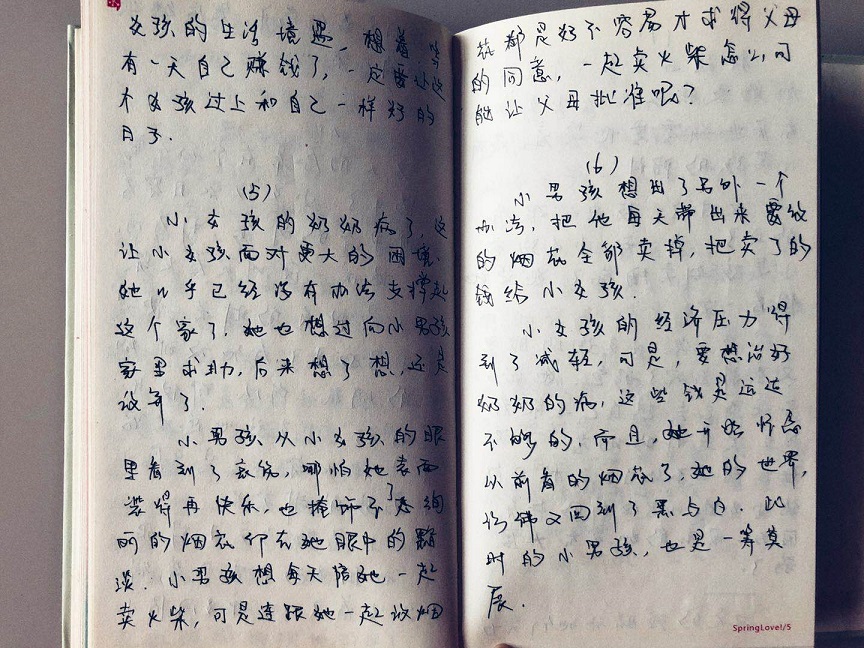 女孩的生活境遇，想着等
有一天自己赚钱了，一定要让这
个女孩过上和自己一样好的
日子.
(5)
小女孩的奶奶病了，这
让小女孩面对更大的困境.
她几乎已经没有办法支撑起
这个家了. 她也想过向小男孩
家里求助，后来想了想，还是
算了.
小男孩从小女孩的眼
里看到了哀伤，哪怕她表面
装得再快乐，也掩饰不了绚
丽的烟花印在她眼中的黯
淡. 小男孩想每天陪她一起
卖火柴，可是连跟她一起放烟
花都是好不容易才求得父母
的同意，一起卖火柴怎么可
能让父母批准呢？
(6)
小男孩想出了另外一个
办法，把他每天带出来要放
的烟花全部卖掉，把卖了的
钱给小女孩.
小女孩的经济压力得
到了减轻，可是，要想治好
奶奶的病，这些钱是远远
不够的. 而且，她开始怀念
以前有的烟花了，她的世界，
仿佛又回到了黑与白. 此
时的小男孩，也是一筹莫
展.
SpringLove!/5